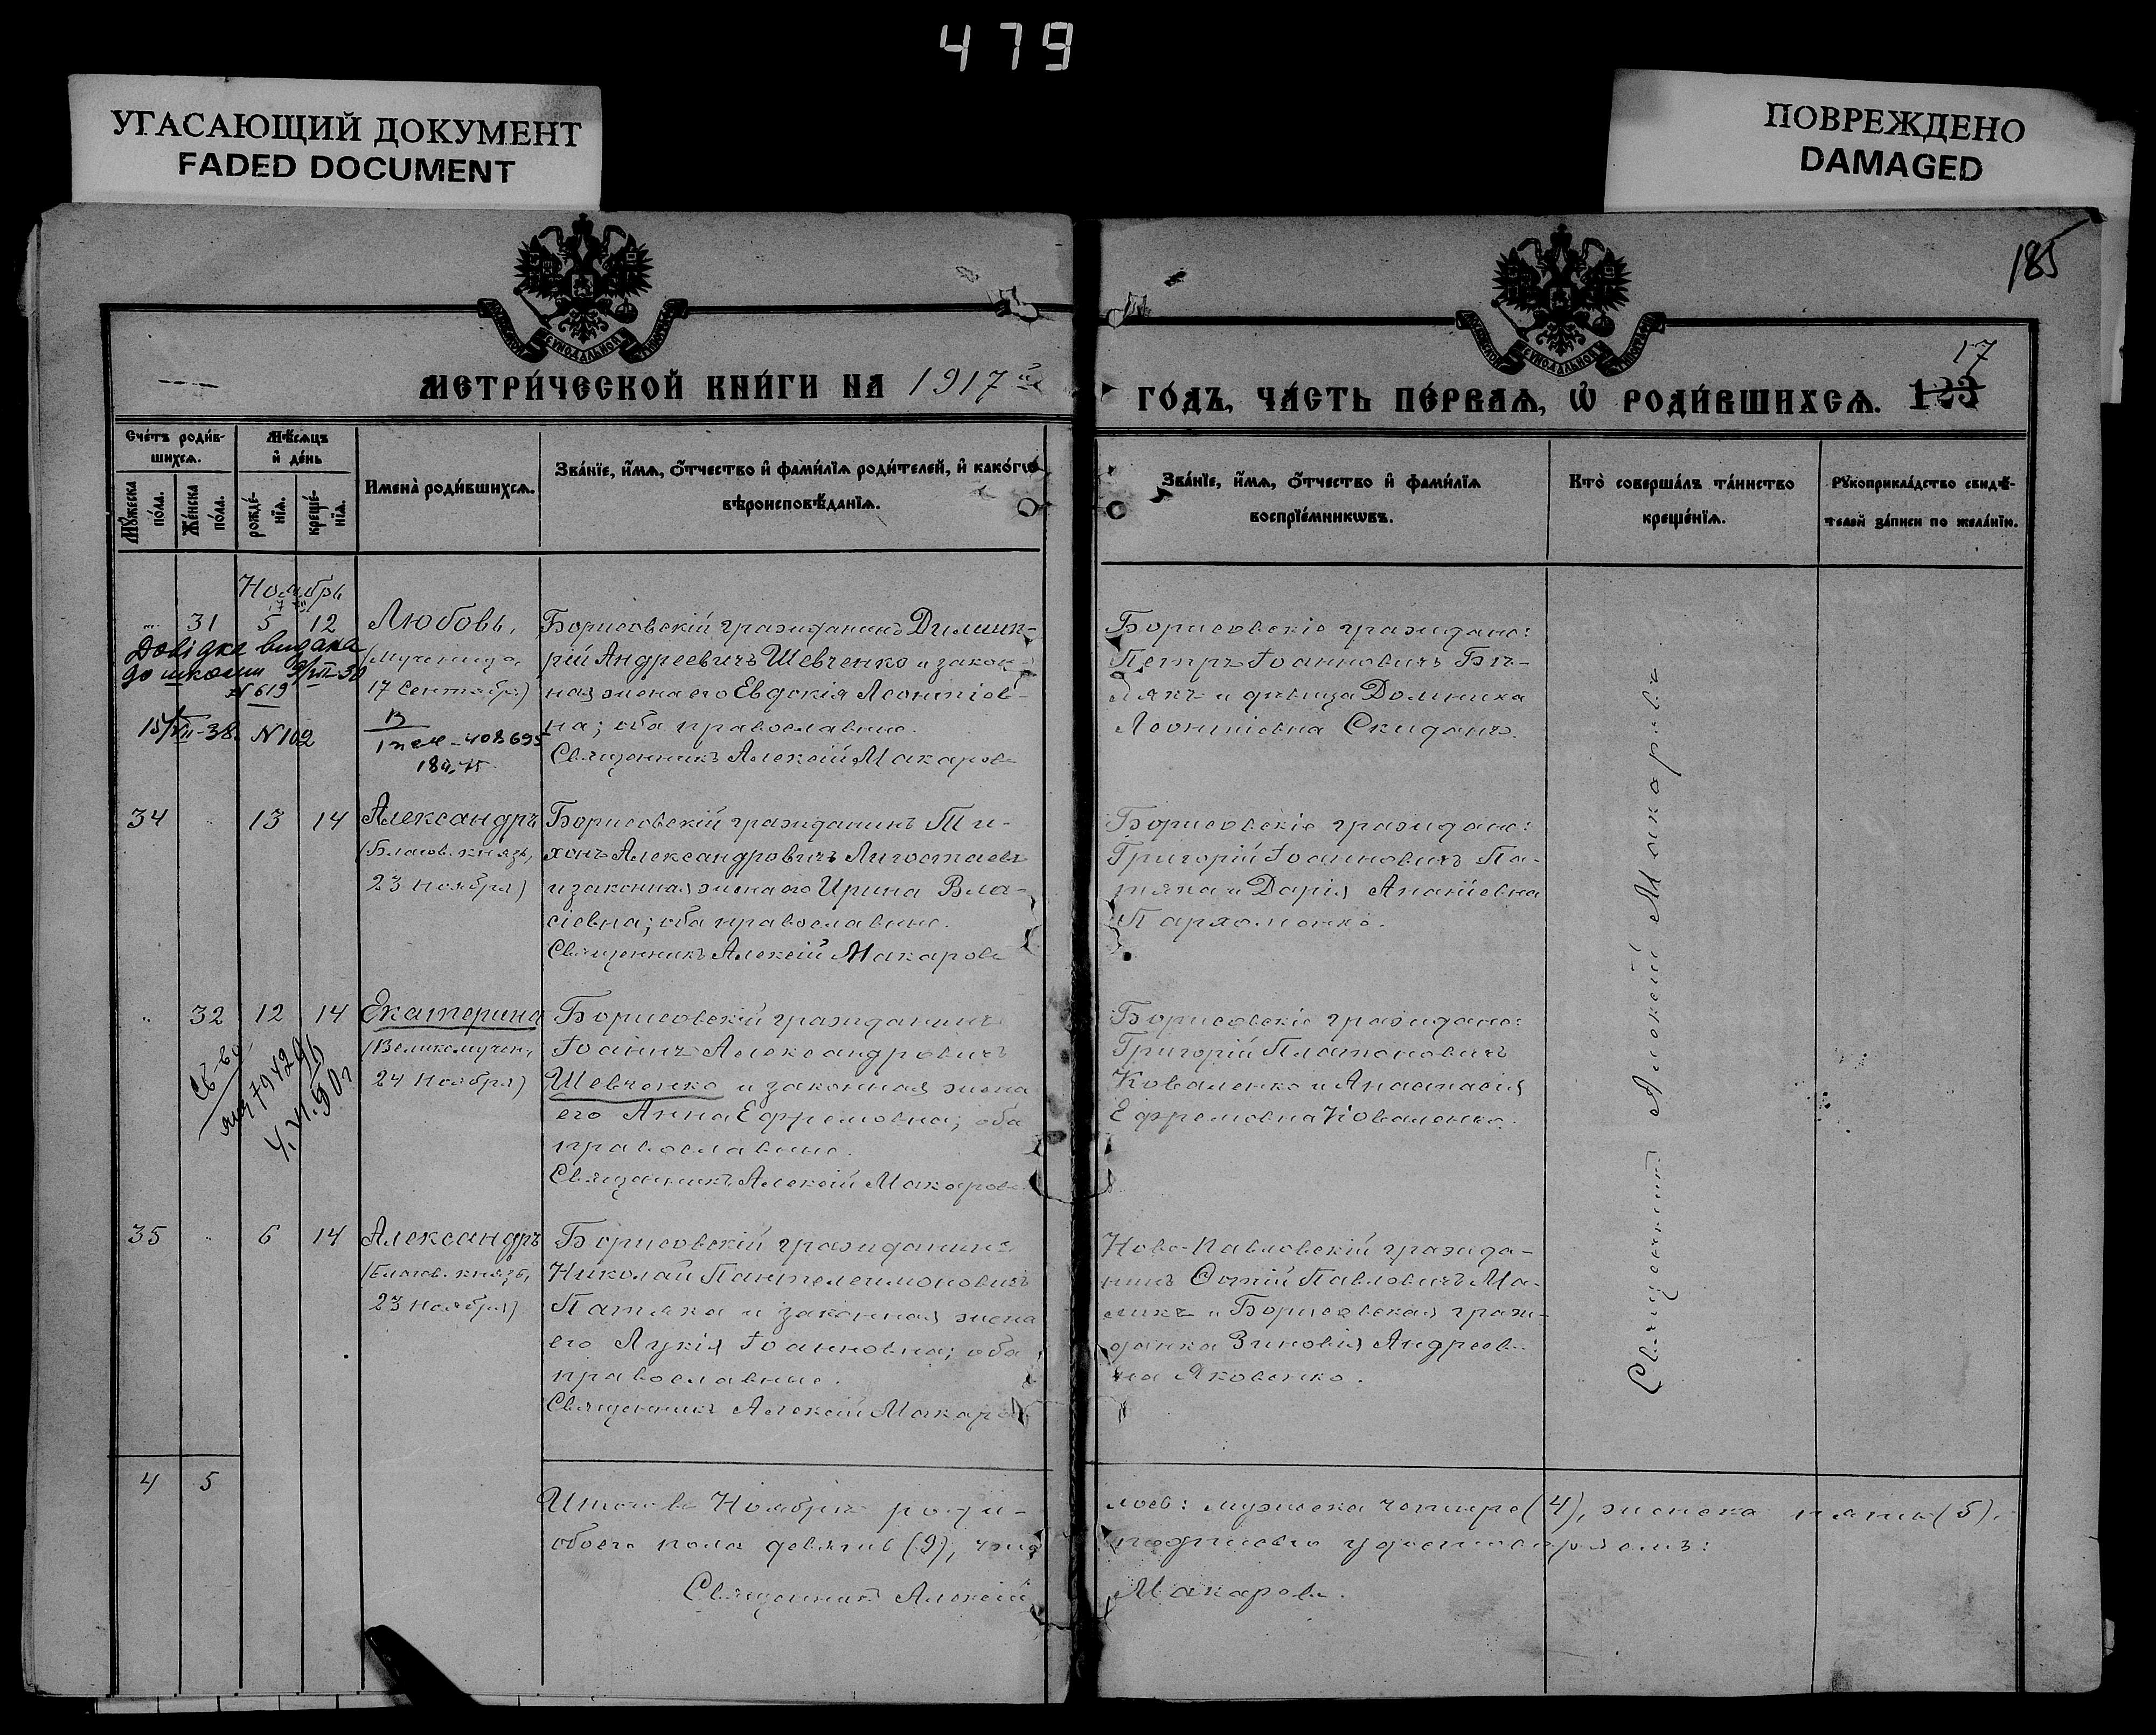 479
УГАСАЮЩИЙ ДОКУМЕНТ
FADED DOCUMENT
ПОВРЕЖДЕНО
DAMAGED
185
МЕТРИ́ЧЕСКОЙ КНИ́ГИ НА 1917 й
ГО́ДЪ, ЧА́СТЬ ПЕ́РВАѦ, Ѡ҆ РОДИ́ВШИХСѦ. 123
17
Сче́тъ роди́в-
шихсѧ.
Мѣ́сѧцъ
и҆ де́нь
Мꙋ́жеска по́ла.
Же́нска по́ла.
рожде́-
нїѧ.
креще́-
нїѧ.
Имена̀ роди́вшихсѧ.
Зва́нїе, и҆́мѧ, ѻ҆́тчество и҆ фами́лїѧ роди́телей, и҆ како́гѡ
вѣроисповѣ́данїѧ.
Зва́нїе, и҆́мѧ, ѻ҆́тчество и҆ фами́лїѧ
воспрїе́мникѡвъ.
Кто̀ соверша́лъ та́инство
креще́нїѧ.
Рꙋкоприкла́дство свидѣ́-
телей за́писи по жела́нїю.
Ноябрь
31 5 12
Любовь,
(Мученица,
17 Сентября)
Довідка видана
до школи
N 619
15/VII-38. N 102
Борисовскій гражданинъ Димит-
рій Андреевичъ Шевченко и закон-
ная жена его Евдокія Леонтіев-
на; оба православные.
Священникъ Алексій Макаровъ
Борисовскіе граждане:
Петръ Іоанновичъ Бѣ-
лякъ и дѣвица Домника
Леонтіевна Скиданъ.
34 13 14
Александръ
(Благов. князь,
23 Ноября)
Борисовскій гражданинъ Ти-
хонъ Александровичъ Лигостаевъ
и законная жена его Ирина Вла-
сіевна; оба православные.
Священникъ Алексій Макаровъ
Борисовскіе граждане:
Григорій Іоанновичъ Па-
тяка и Дарія Ананіевна
Пархоменко.
32 12 14
Екатерина
(Великомучен.,
24 Ноября)
Борисовскій гражданинъ
Іоаннъ Александровичъ
Шевченко и законная жена
его Анна Ефремовна; оба
православные.
Священникъ Алексій Макаровъ
Борисовскіе граждане:
Григорій Платоновичъ
Коваленко и Анастасія
Ефремовна Коваленко.
35 6 14
Александръ
(Благов. князь,
23 Ноября)
Борисовскій гражданинъ
Николай Пантелеимоновичъ
Патяка и законная жена
его Лукія Іоанновна; оба
православные.
Священникъ Алексій Макаровъ
Ново-Павловскій гражда-
нинъ Павловичъ Ма-
ликъ и Борисовская граж-
данка Зиновія Андреев-
на Яковенко.
Священникъ Алексій Макаровъ
4 5
Итого въ Ноябрѣ роди-
лось: мужеска четыре (4), женска пять (5),
обоего пола девять (9), что
подписомъ удостовѣряемъ:
Священникъ Алексій
Макаровъ.